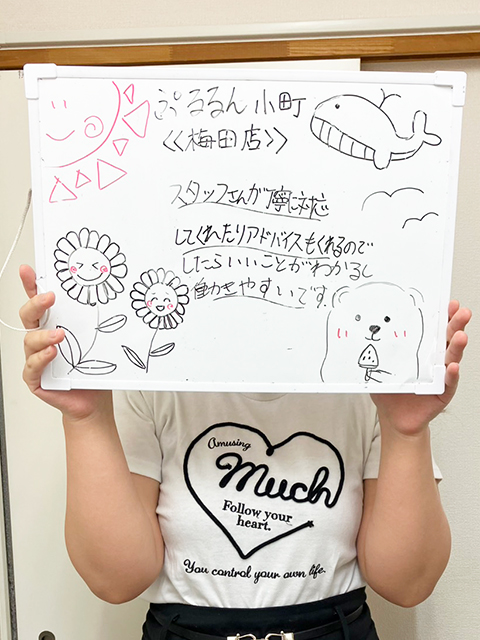 ぷるるん小町
≪梅田店≫
スタッフさんが丁寧に対応
してくれたりアドバイスもくれるので
したらいいことがわかるし
働きやすいです。
Amusing
Much
Follow your
heart.
You control your own life.